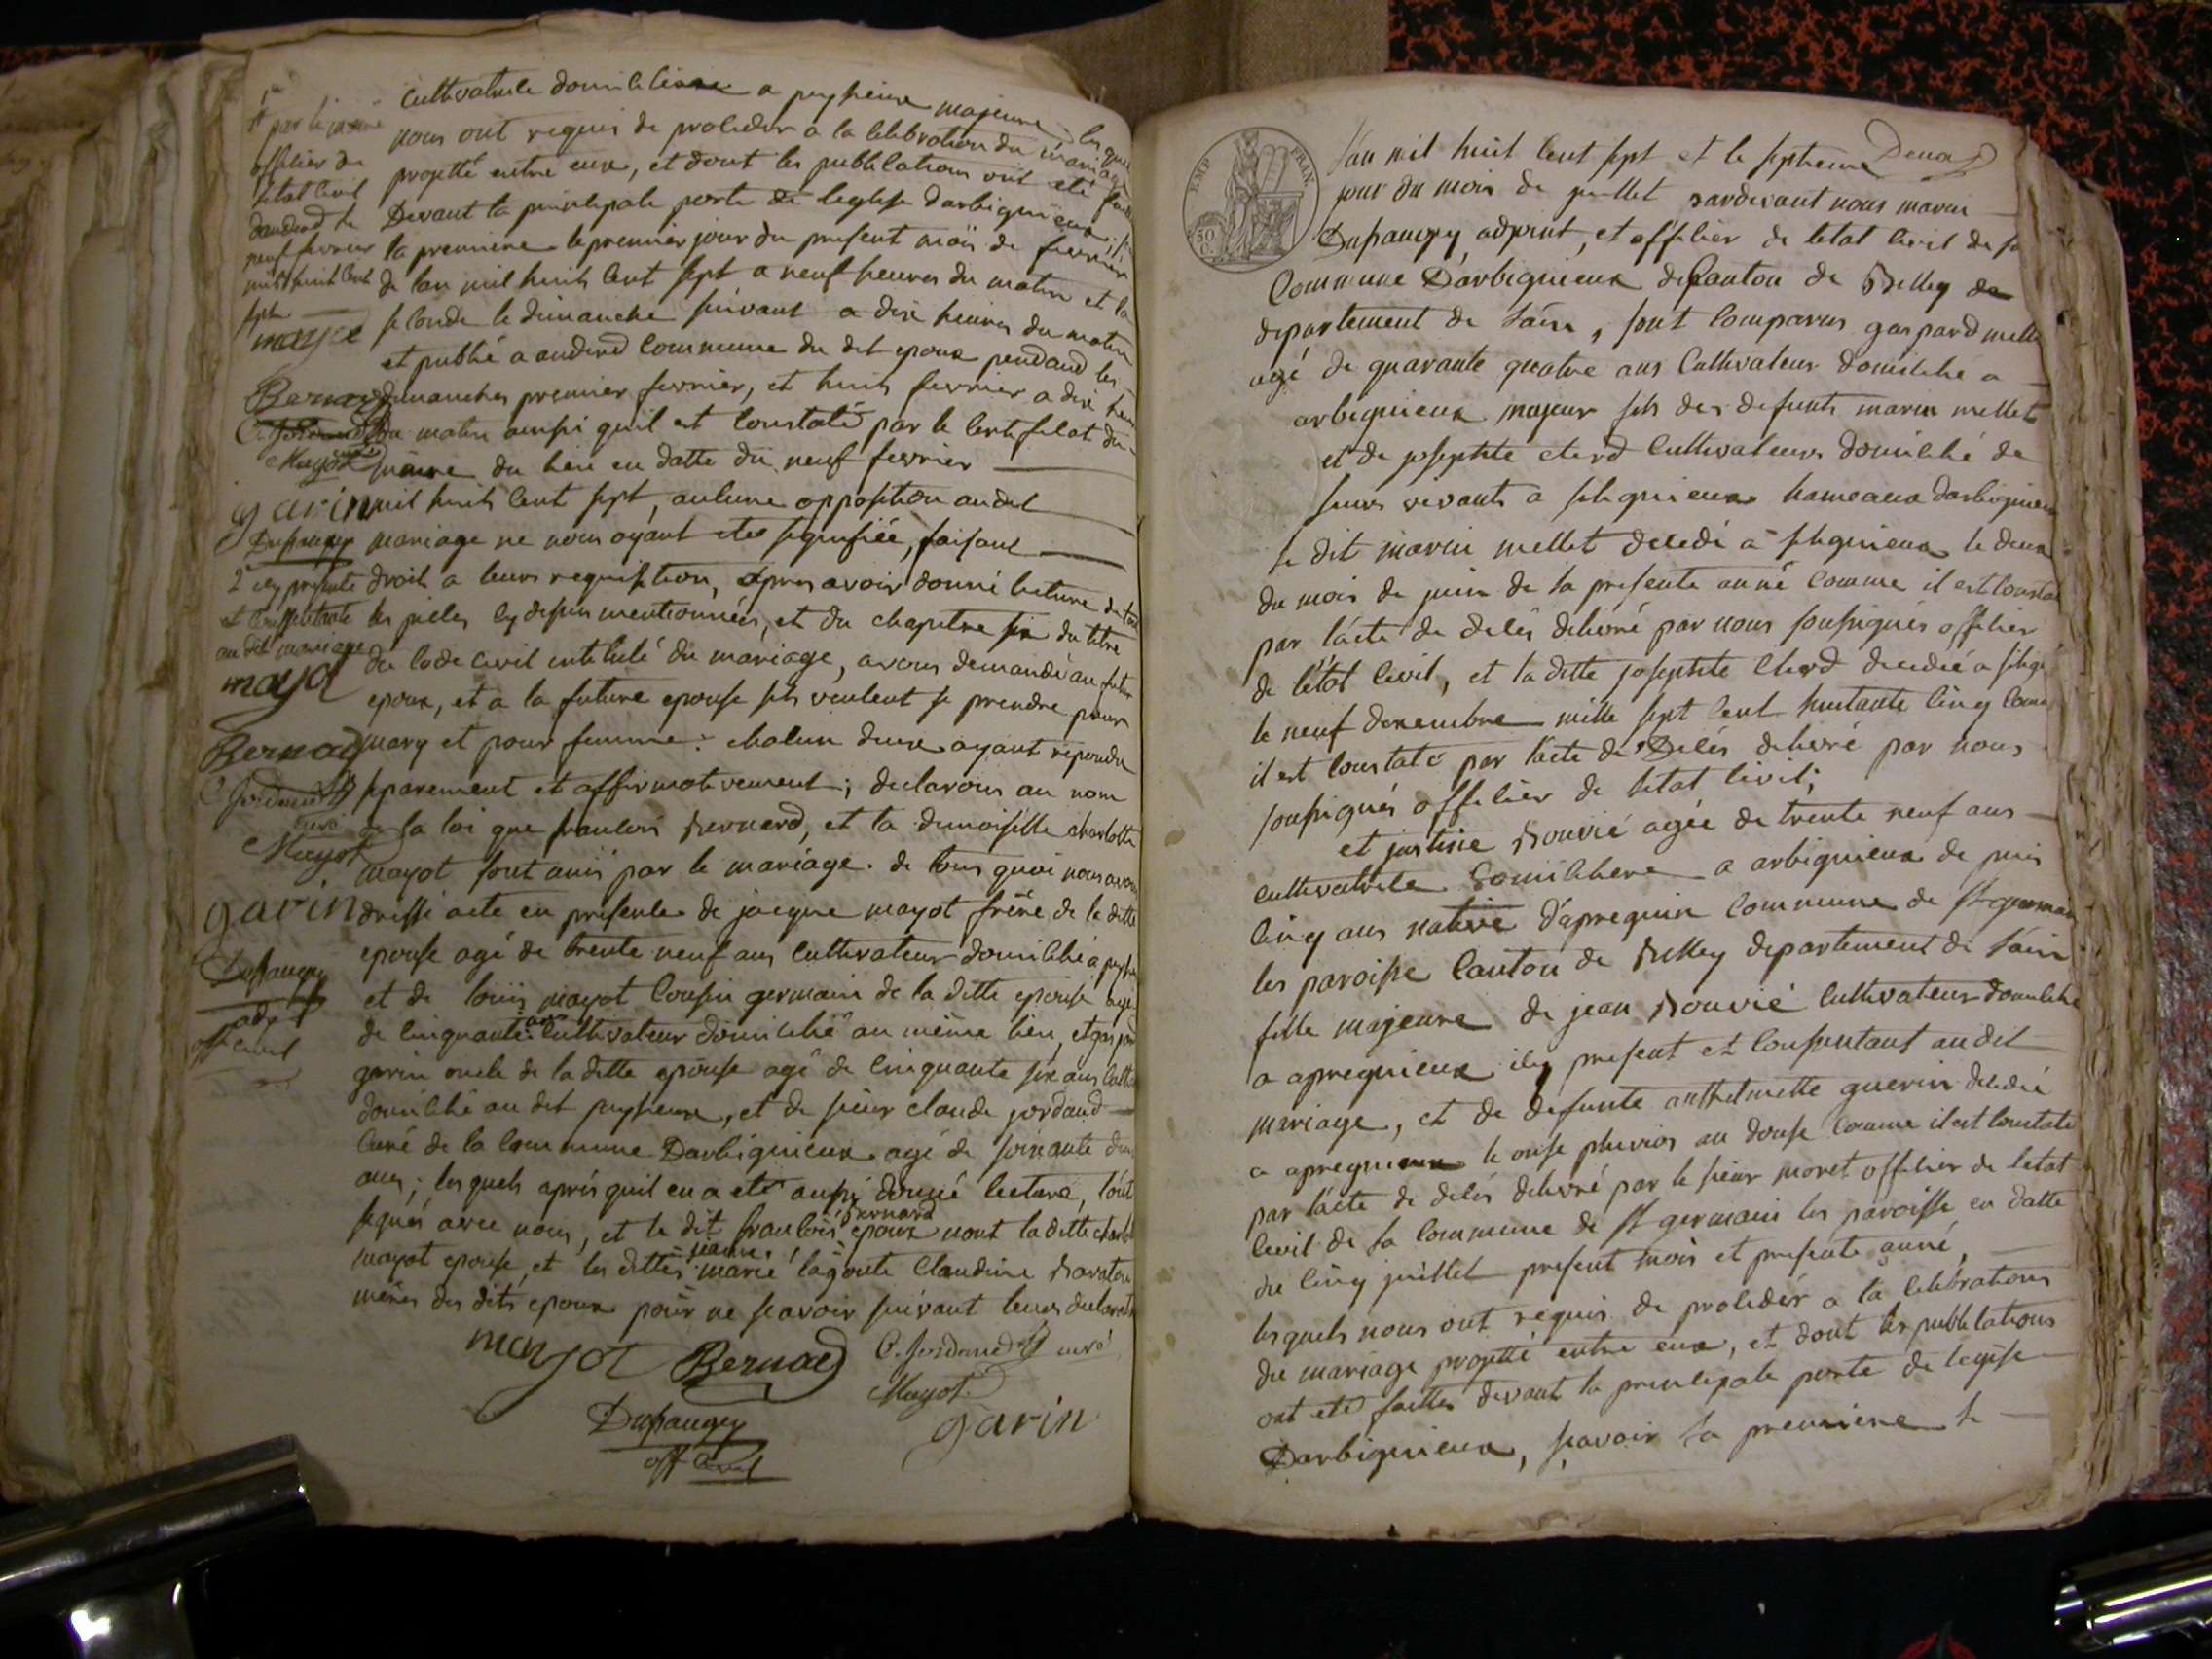 cultivatrice domicilieé a peyzieux majeure les quels
nous ont requis de proceder a la celebration du mariage
projetté entre eux, et dont les publications ont eté faites
Devant la principale porte de leglise darbignieux,
la premiere le premier jour du present mois de fevrier
de lan mil huit cent sept a neuf heures du matin et la
seconde le dimanche suivant a dix heures du matin
et publié a andert commune du dit epoux pendand les
dimanches premier fevrier, et huit fevrier a dix heures
du matin ainsi quil est constaté par le certificat du
maire du lieu en datte du neuf fevrier
mil huit cent sept, aucune opposition audit
mariage ne nous ayant eté signifiée, faisant
droit a leurs requisition, apres avoir donné lecture de toutes
les pieces cy dessus mentionnées, et du chapitre six du titre
du code civil intitulé du mariage, avons demandé au futur
epoux, et a la future epouse sils veulent se prendre pour
mary et pour femme: chacun deux ayant repondu
separement et affirmativement; declarons au nom
de la loi que francois Bernard, et la demoiselle charlotte
mayot sont unis par le mariage. de tous quoi nous avons
dressé acte en presence de jacque mayot frére de la ditte
epouse agé de trente neuf ans cultivateur domicilié a
et de louis mayot cousin germain de la ditte epouse agé
de cinquante ans cultivateur domicilié au même lieu, et gaspard
garin oncle de la ditte epouse agé de cinquante six ans
domicilié au dit peyzieux, et de sieur claude jordand
curé de la commune Darbignieux agé de soixante
ans; les quels aprés quil en a eté aussi donné lecture, l'ont
signés avec nous, et le dit francois Bernard epoux nont la ditte charlotte
mayot epouse et les dittes jeanne marie lagoute Claudine Bavaton
méres des dits epoux pour ne scavoir suivant leurs declarations
mayot Bernard C. Jordand curé
Mayot
Dupraugey garin
off civil
1er
par le maire
officier de
letat civil
dandert le
neuf fevrier
mil huit cent
sept
mayot
Bernard
C. Jordand
curé
Mayot
garin
Dupraugey
2e cy presente
et consentante
au dit mariage
mayot
Bernard
C. Jordand
curé
Mayot
garin
Dupraugey
adj
off civil
EMP. FRAN.
50
C.
Lan mil huit cent sept et le septieme
jour du mois de juillet pardevant nous marin
Dupraugey adjoint, et officier de letat civil de la
Commune Darbignieux de canton de Belley
departement de l'ain, sont comparus gaspard mellet
agé de quarante quatre ans Cultivateur domicilié a
arbignieux majeur fils des defunts marin mellet
et de josephte clerd cultivateurs domicilié de
leurs vivants a silignieux hameaux darbignieux
le dit marin mellet decedé a silignieux le deux
du mois de juin de la presente anné comme il est constaté
par l'acte de decés delivré par nous soussignés officier
de l'état civil, et la ditte josephte Clerd decedée a
le neuf decembre mille sept cent huitante cinq comme
il est constaté par l'acte de Decés delivré par nous
soussignés officier de letat civil;
et justine Bouvié agée de trente neuf ans
cultivatrice domiciliere a arbignieux de puis
cinq ans native d'apregnin commune de St germain
les paroisse canton de Belley departement de l'ain
fille majeure de jean Bouvié cultivateur domicilié
a apregnieux icy present et consentant audit
mariage, et de defunte anthelmette guerin decedée
a apregnieux le onse pluvios an douse comme il est constaté
par l'acte de decés delivré par le sieur moret officier de letat
civil de la commune de St germain les paroisse en datte
du cinq juillet present mois et presente anné,
lesquels nous ont requis de proceder a la celebrations
du mariage projetté entre eux, et dont les publications
ont eté faittes devant la principale porte de legise
Darbignieux, scavoir la premiere le